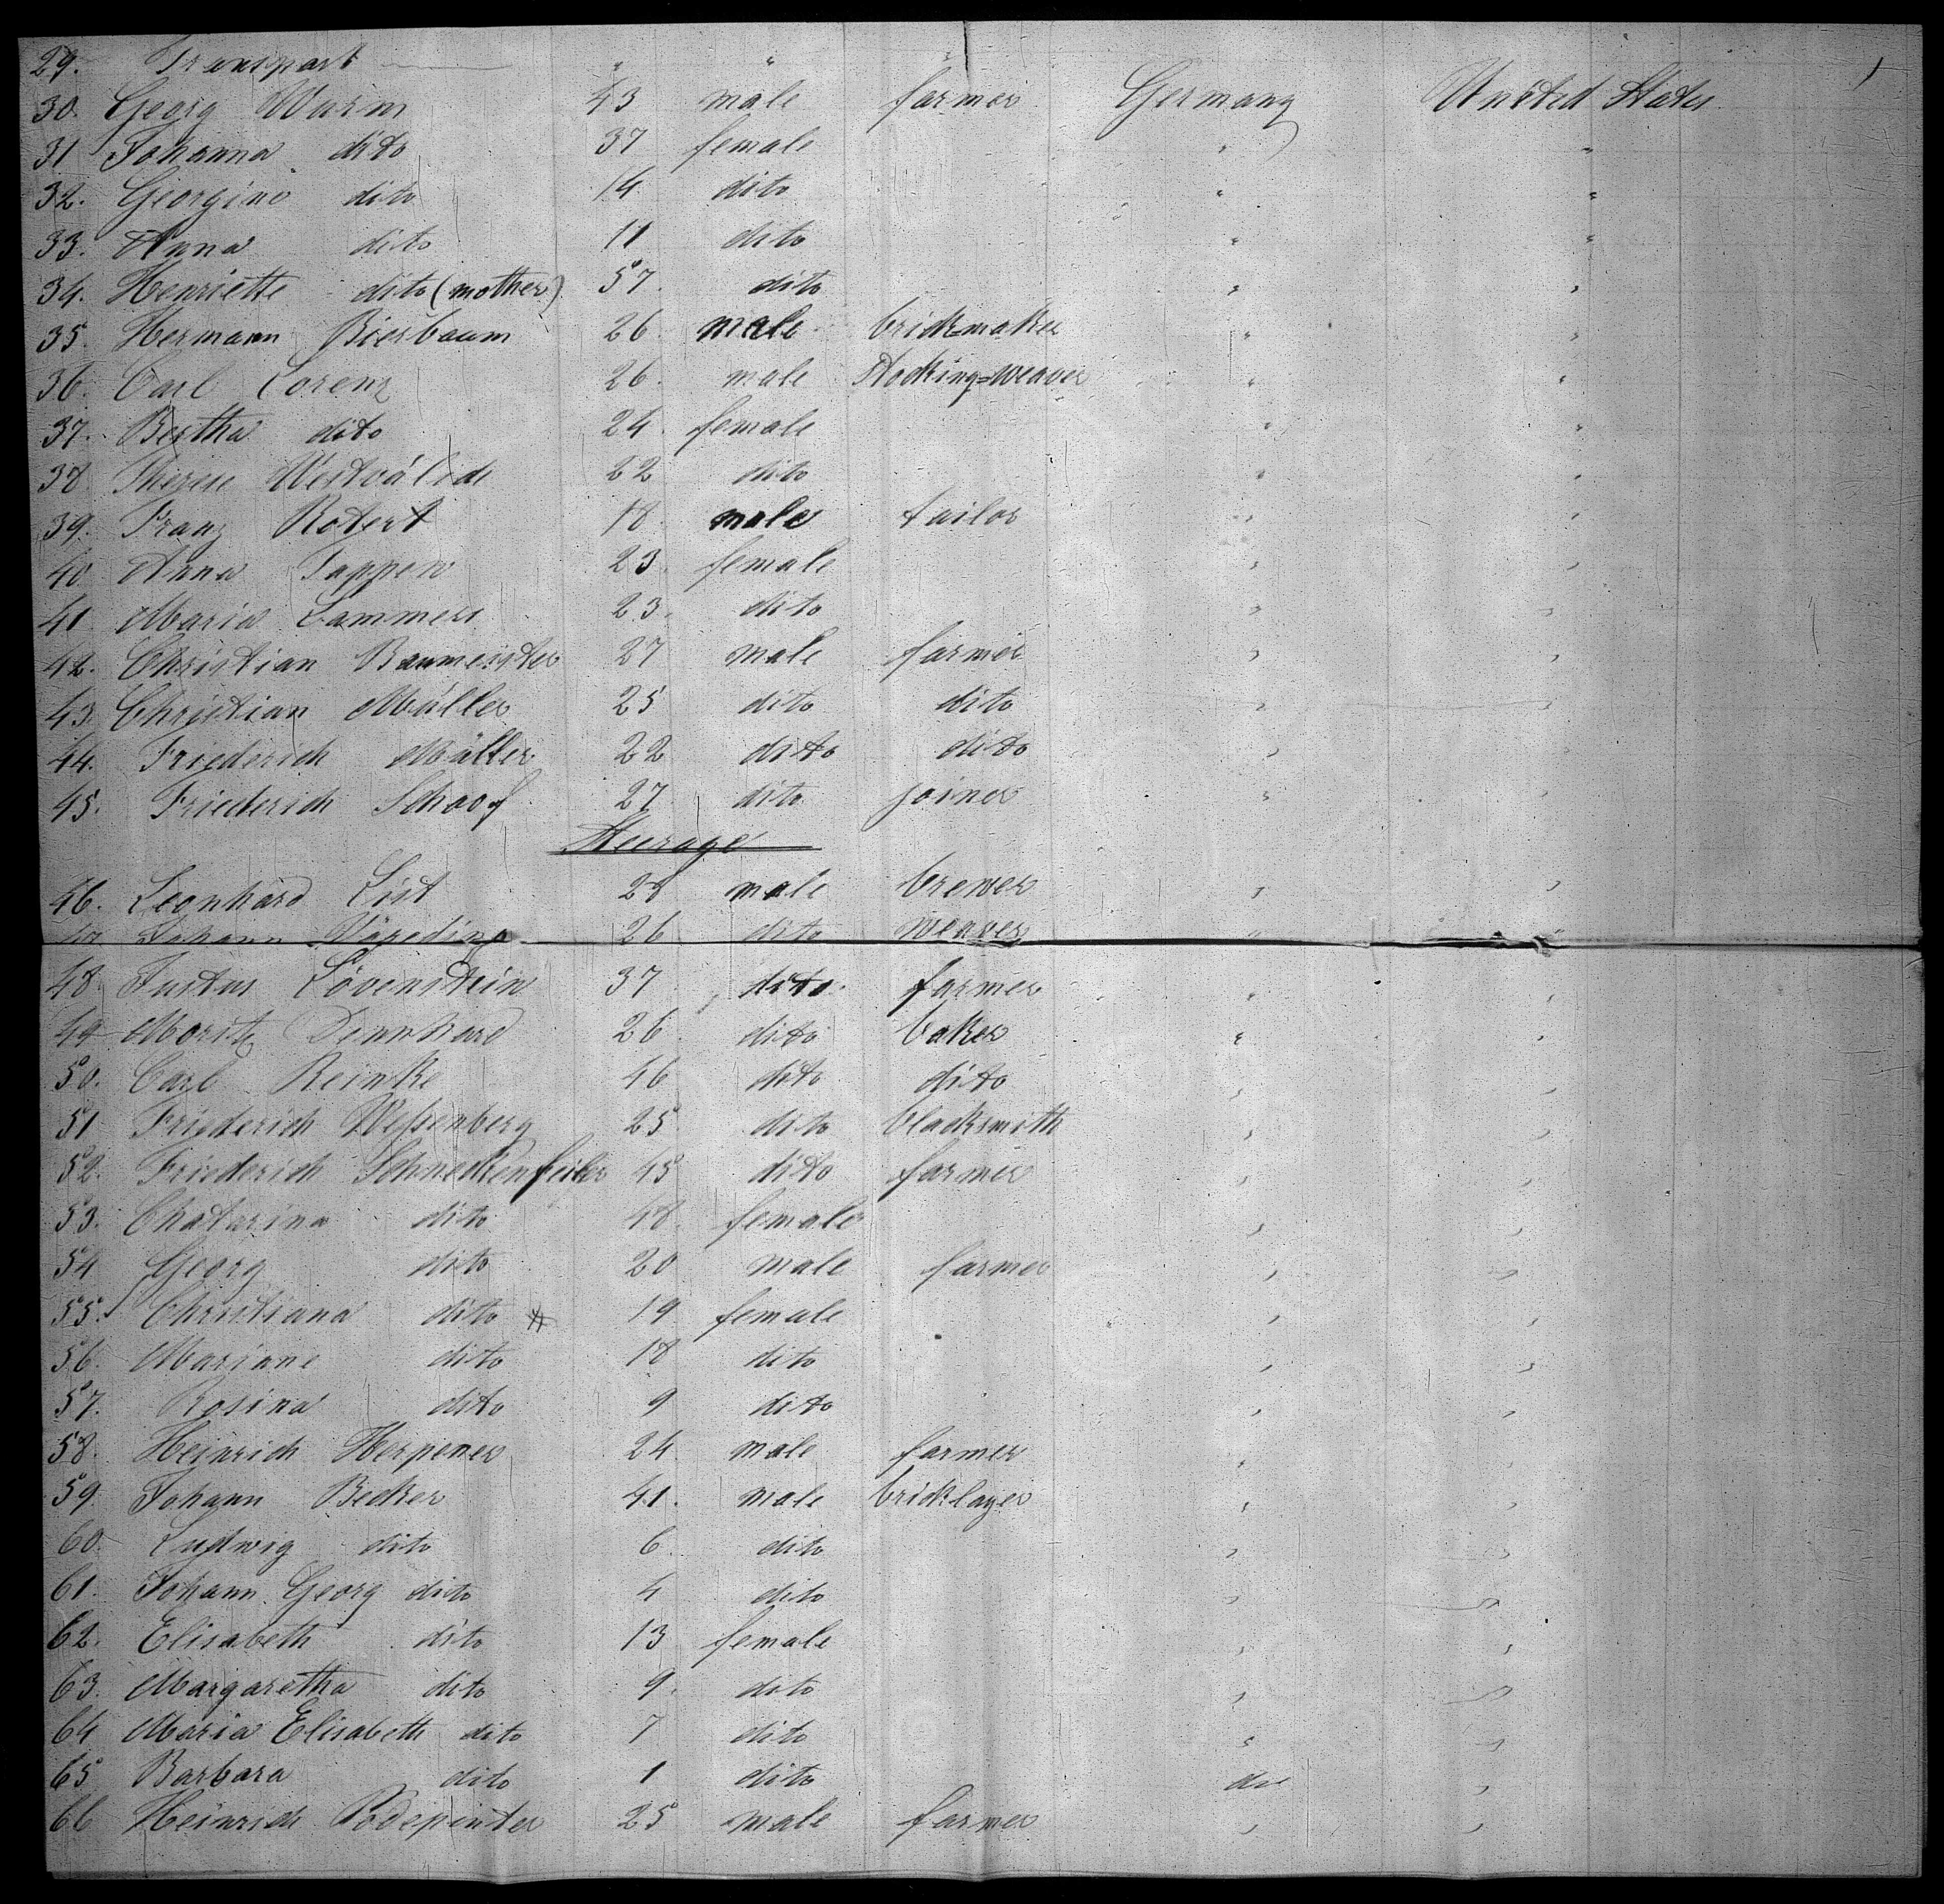 29. Transport " " "
30. Georg Warm 43 male farmer Germany United States
31 Johanna dito 37 female " "
32. Georgine dito 14 dito " "
33. Anna dito 11 dito " "
34. Henriette dito (mother) 57. dito " "
35. Hermann Bierbaum 26. male brick-maker " "
36. Carl Lorenz 26. male Stocking=weaver " "
37. Bertha dito 24. female " "
38 Therese 22 dito " "
39. Franz Rotert 18. male tailor " "
40 Anna Tappen 23. female " "
41 Maria Lammers 23. dito " "
42. Christian Baumeister 27 male farmer " "
43. Christian Müller 25 dito dito " "
44. Friederich Müller 22 dito dito " "
45. Friederich Schoof 27. dito joiner " "
Steerage
46. Leonhard List 28 male brewer " "
47 Johann 26. dito weaver " "
48. Justus Lövenstein 37. dito. farmer " "
49 Moritz Dennhard 26. dito baker " "
50. Carl Reinke 46 dito dito " "
51 Friederich Weßenberg 25. dito blacksmith " "
52. Friederich 45 dito farmer " "
53. Chatarina dito 48. female " "
54 Georg dito 20 male farmer " "
55. Christiana dito 19. female " "
56. Mariane dito 18 dito " "
57. Rosina dito 9 dito " "
58. Heinrich Herpener 24. male farmer " "
59 Johann Becker 41. male bricklayer " "
60. Ludwig dito 6. dito " "
61. Johann Georg dito 4 dito " "
62. Elisabeth dito 13 female " "
63. Margaretha dito 9. dito " "
64 Maria Elisabeth dito 7 dito " "
65 Barbara dito 1 dito do "
66 Heinrich 25 male farmer " "